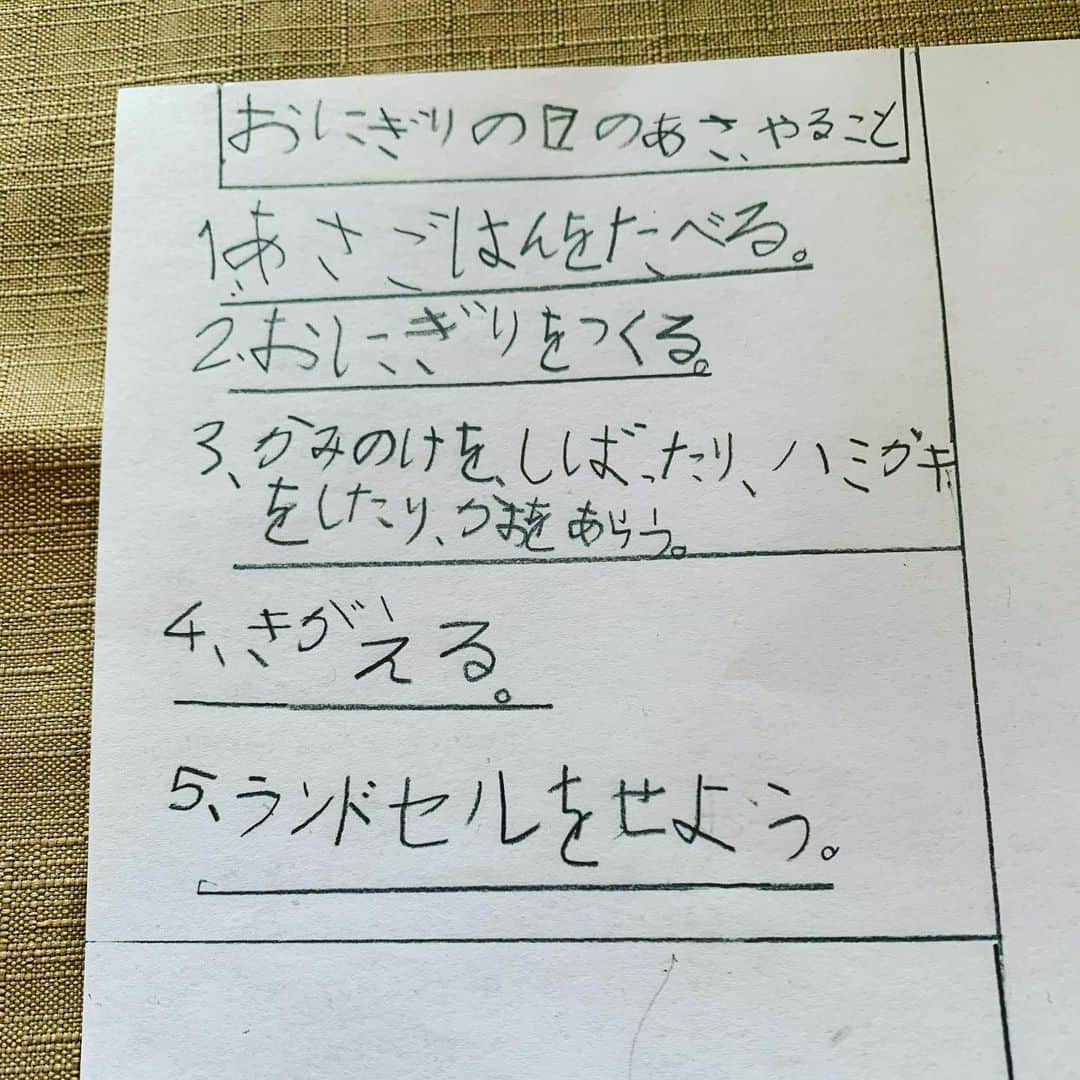 おにぎりの日のあさ、やること
1.あさごはんをたべる。
2.おにぎりをつくる。
3、かみのけを、しばったり、ハミガキ
をしたり、かおをあらう。
4、きがえる。
5、ランドセルをせよう。